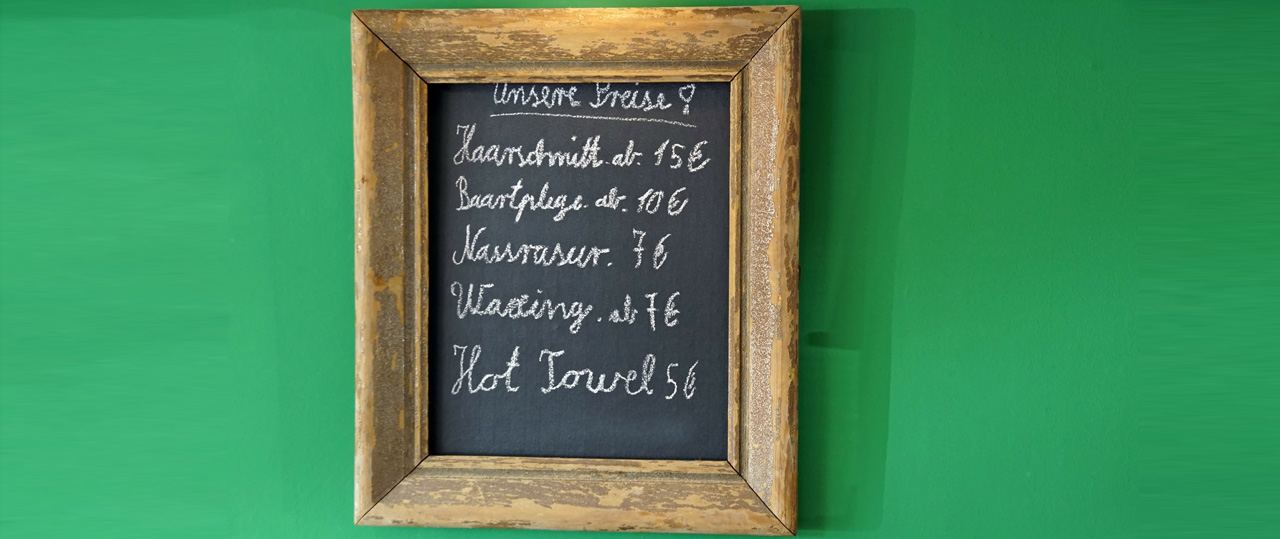 Unsere Preise
Haarschnitt. ab. 15€
Baartplege. ab. 10€
Nassrasur. 7€
Waxing. ab 7€
Hot Towel 5€